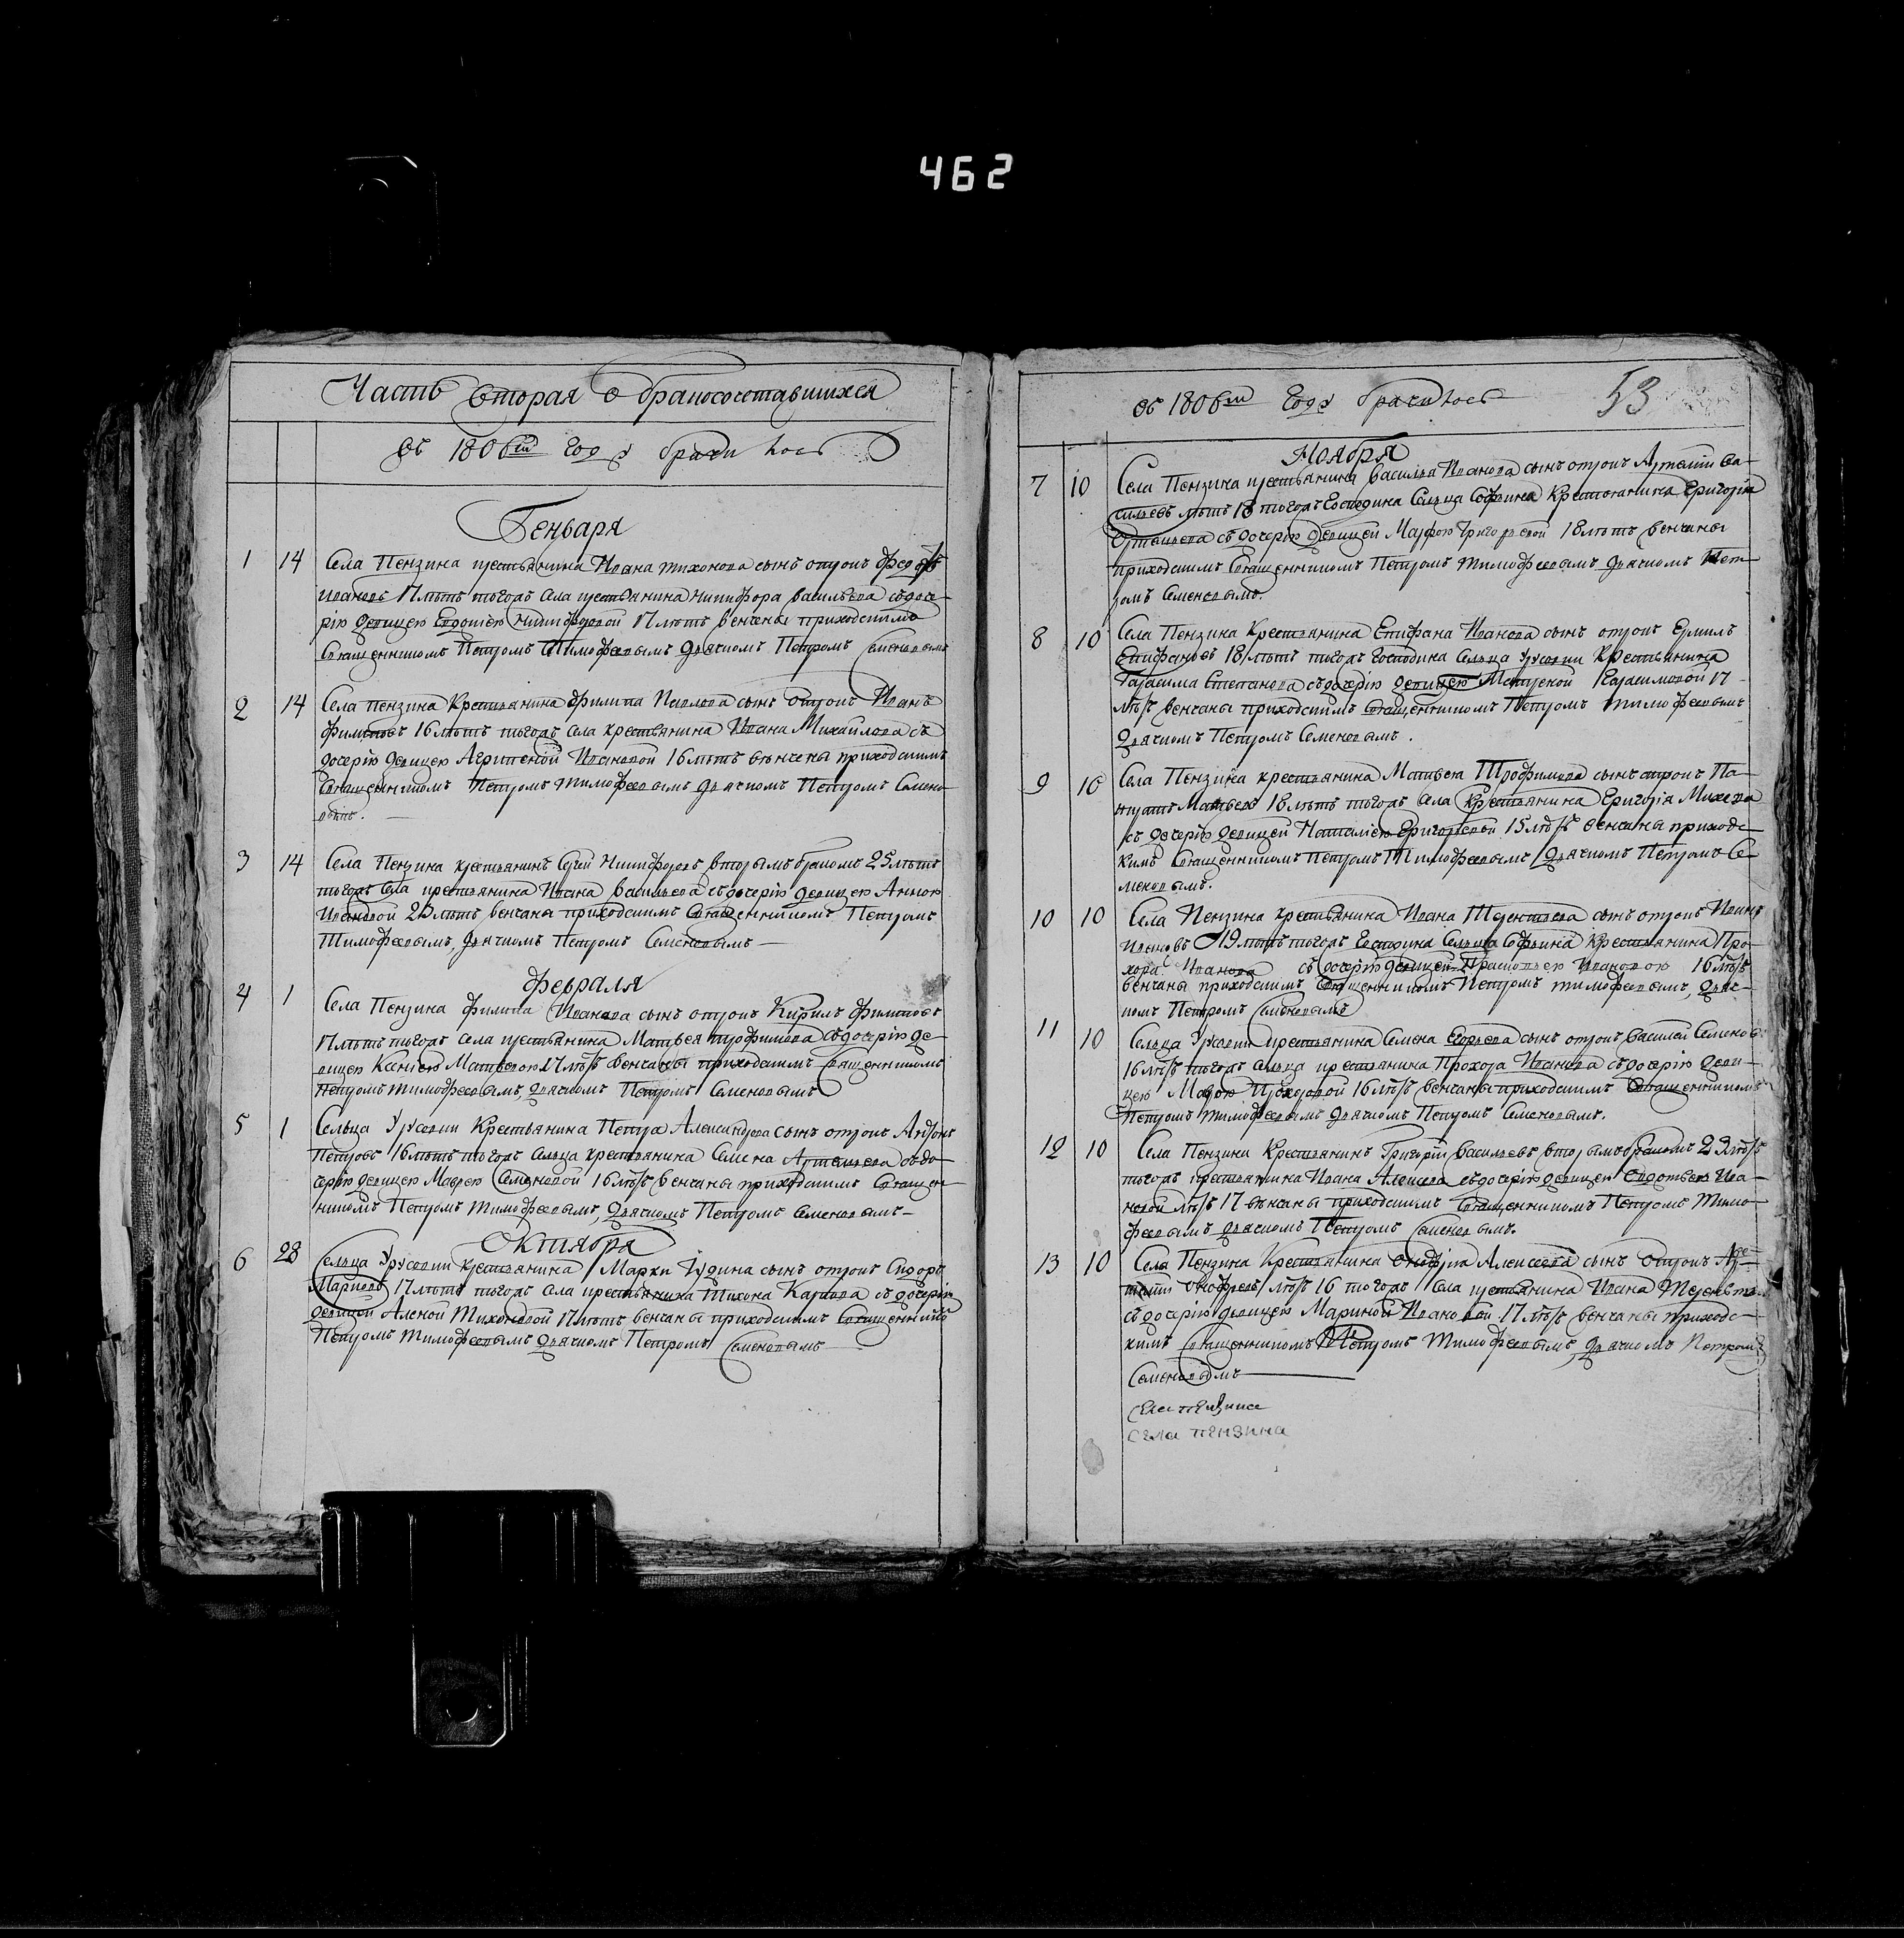 462
Часть вторая о бракосочетавшихся
въ 1806м году бракилось
Генваря
1 14 Села Пензина крестьянина Ивана тихонова сынъ отрокъ федоръ
ивановъ 17 летъ тогожъ села крестьянина никифора васильева съ доче-
рію девицею Евдокіею Никифоровой 17 летъ венчены приходскимъ
священникомъ Петромъ Тимофеевымъ дьячкомъ Петромъ Семеновымъ
2 14 Села Пензина Крестьянина Филипа Павлова сынъ отрокъ Иванъ
филиповъ 16 летъ тогожъ села крестьянина Ивана Михайлова съ
дочерію девицею Агрипеной Ивановой 16 летъ венчены приходскимъ
священникомъ Петромъ тимофеевымъ дьячкомъ Петромъ Семено-
вымъ.
3 14 Села Пензина крестьянинъ Никифоровъ вторымъ бракомъ 25 летъ
тогожъ села крестьянина Ивана васильева съ дочерію девицею Анною
Ивановой 25 летъ венчаны приходскимъ священникомъ Петромъ
Тимофеевымъ, дьячкомъ Петромъ Семеновымъ
февраля
4 1 Села Пензина филипа Иванова сынъ отрокъ Кирилъ филиповъ
17 летъ тогожъ села крестьянина Матвея трофимова съ дочерію де-
вицею Ксеніею Матвевою 17 летъ венчаны приходскимъ священникомъ
Петромъ тимофеевымъ, дьячкомъ Петромъ Семеновымъ
5 1 Сельца Крестьянина Петра Александрова сынъ отрокъ Антонъ
Петровъ 16 летъ тогожъ сельца крестьянина Семена Артемьева съ до-
черію девицею Маврею Семеновой 16 летъ венчаны приходскимъ священ-
никомъ Петромъ тимофеевымъ, дьячкомъ Петромъ Семеновымъ
Октября
6 28 Сельца крестьянина Марки Іудина сынъ отрокъ Сидоръ
Марковъ 17 летъ тогожъ села крестьянина Тихона Карпова съ дочерію
девицей Аленой Тихоновой 17 летъ венчаны приходскимъ священникомъ
Петромъ тимофеевымъ дьячкомъ Петромъ Семеновымъ
въ 1806м году бракилось 53
Ноября
7 10 Села Пензина крестьянина василья Иванова сынъ отрокъ Артемій ва-
сильевъ летъ 18 тогожъ господина Сельца Софьина Крестьянина Григорія
Артемьева съ дочерію девицей Марфою Григорьевой 18 летъ венчаны
приходскимъ священникомъ Петромъ тимофеевымъ дьячкомъ Пет-
ромъ Семеновымъ.
8 10 Села Пензина Крестьянина Епифана Иванова сынъ отрокъ Ермилъ
Епифановъ 18 летъ тогожъ господина сельца Крестьянина
Гарасима Степанова съ дочерію девицею Гарасимовой 17
летъ венчаны приходскимъ священникомъ Петромъ тимофеевымъ
Дьячкомъ Петромъ Семеновымъ.
9 10 Села Пензина крестьянина Матвея Трофимова сынъ отрокъ Па-
Матвеевъ 16 летъ тогожъ села крестьянина Григорія Михеева
съ дочерію девицей Наталіею Григорьевой 15 летъ венчаны приходс-
кимъ священникомъ Петромъ Тимофеевымъ Дьячкомъ Петромъ Се-
меновымъ.
10 10 Села Пензина крестьянина Ивана Терентьева сынъ отрокъ Иванъ
Ивановъ 19 летъ тогожъ господина сельца Софьина Крестьянина Про-
хора Иванова съ дочерію девицей Ивановою 16 летъ
венчаны приходскимъ священникомъ Петромъ тимофеевымъ, дьяч-
комъ Петромъ Семеновымъ
11 10 Сельца крестьянина Семена Егорьева сынъ отрокъ василей Семеновъ
16 летъ тогожъ сельца крестьянина Прохора Иванова съ дочерію деви-
цею Прохоровой 16 летъ венчаны приходскимъ священникомъ
Петромъ тимофеевымъ дьячкомъ Петромъ Семеновымъ.
12 10 Села Пензина Крестьянинъ Григорій васильевъ вторымъ бракомъ 23 летъ
тогожъ крестьянина Ивана Алексеева съ дочерію девицей Евдотьею Ива-
новой летъ 17 венчаны приходскимъ священникомъ Петромъ Тимо-
феевымъ дьячкомъ Петромъ Семеновымъ.
13 10 Села Пензина Крестьянина Алексеева сынъ отрокъ
летъ 16 тогожъ села крестьянина Ивана Терентьева
съ дочерію девицею Мариной Ивановой 17 летъ венчаны приходс-
кимъ священникомъ Петромъ Тимофеевымъ, дьячкомъ Петромъ
Семеновымъ
Села пензина
Села пензина